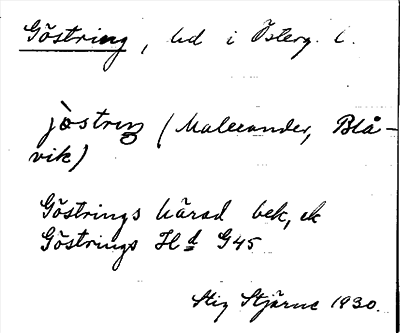 Göstring, hd i Österg. l.
jöstrıŋ (Malexander, Blå-
vik)
Göstrings härad bek, ek
Göstrings Hd G45
Stig Stjärne 1930.